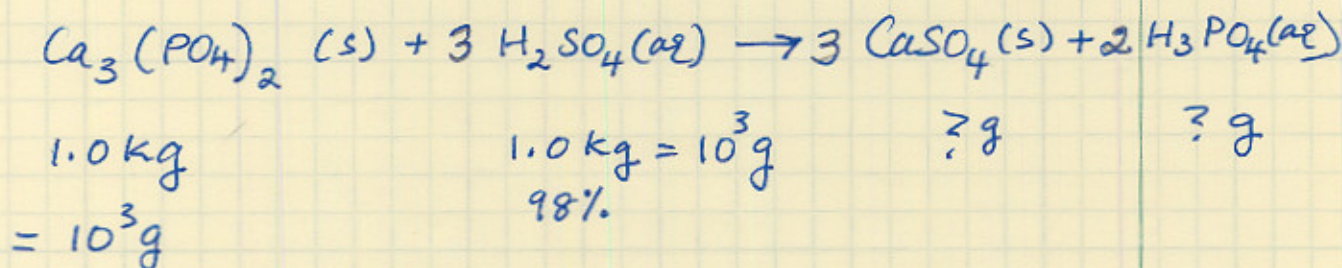 Ca₃(PO₄)₂ (s) + 3 H₂SO₄(aq) → 3 CaSO₄(s) + 2 H₃PO₄(aq)
1.0 kg 1.0 kg = 10³g ? g ? g
98%
= 10³g